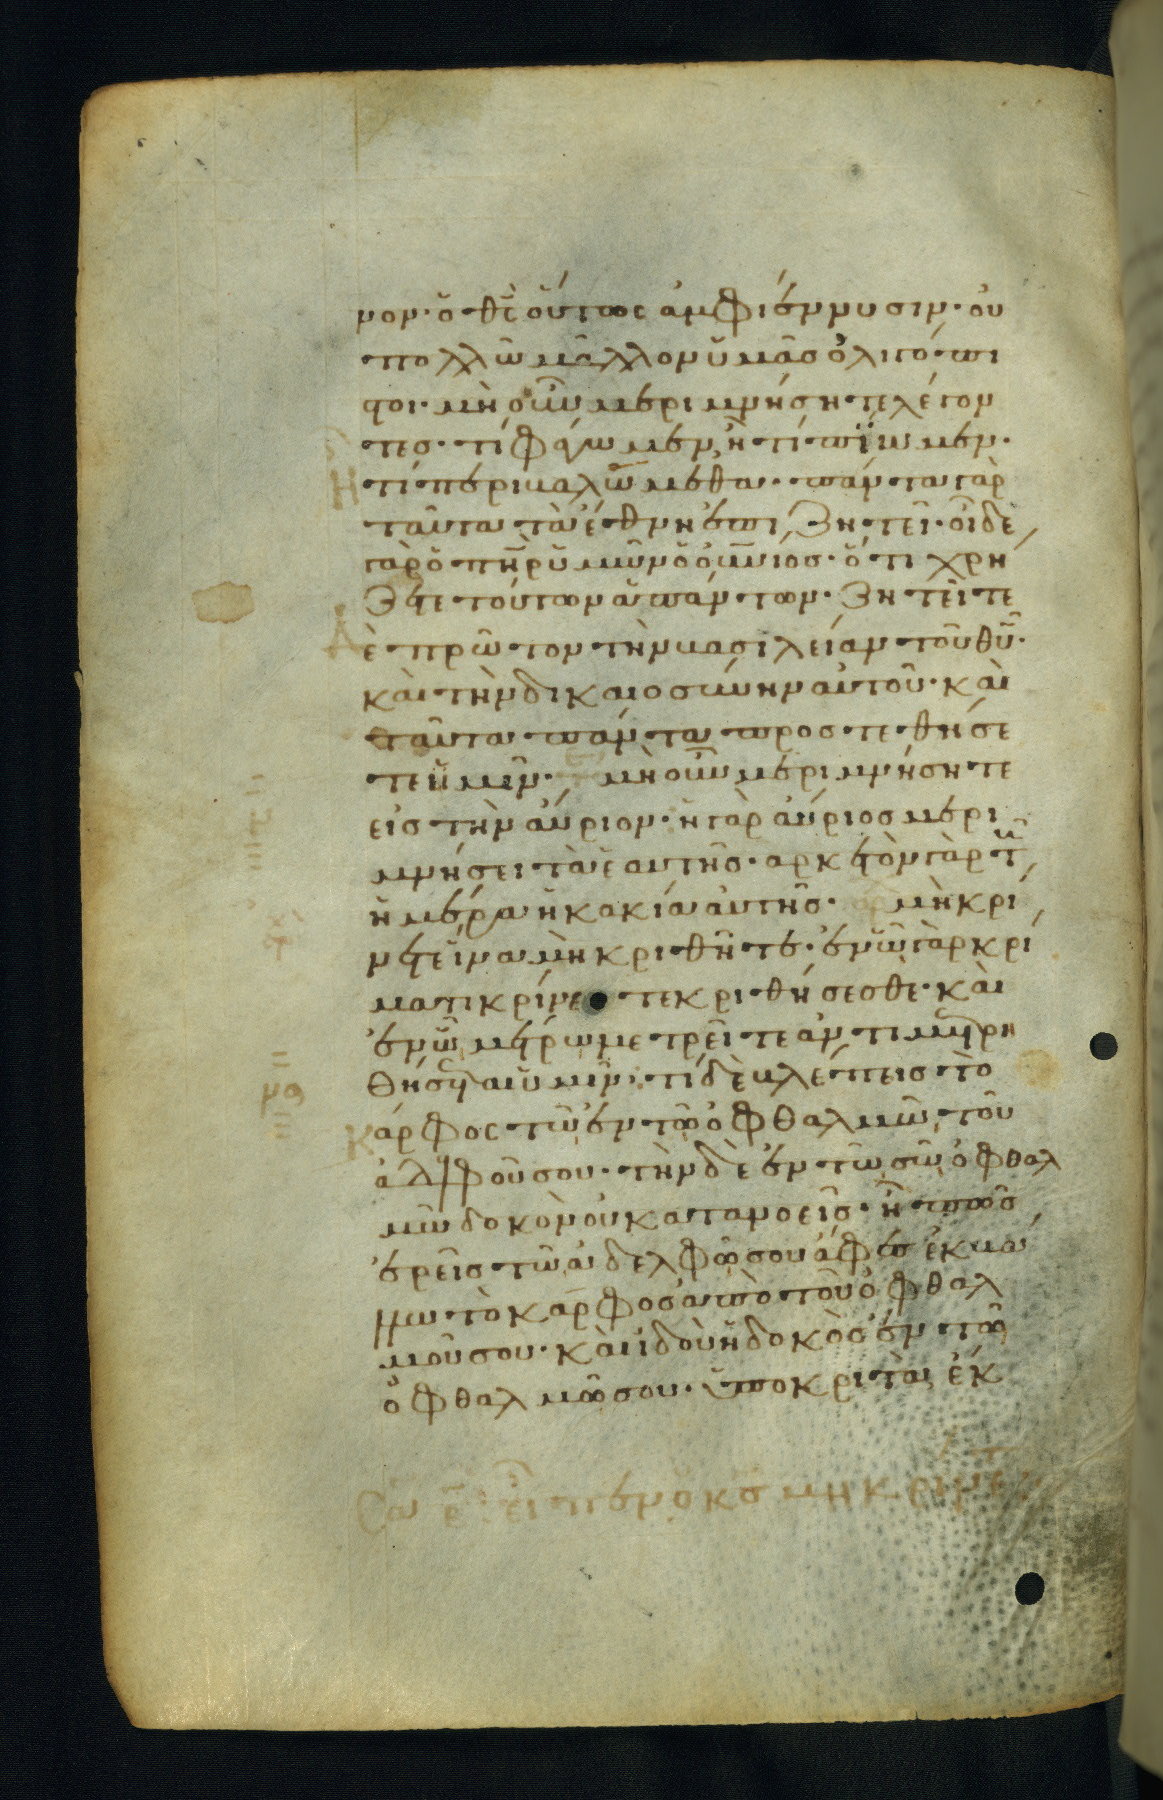 νον· ὁ θς̄ οὕτως ἀμφιέννυσιν· οὐ
πολλῶ μᾶλλον ὑμᾶσ ὀλιγόπι
στοι· μὴ οὖν μεριμνήσητε λέγον
τεσ· τί φάγωμεν, ἢ τί πίωμεν·
ἢ τί περιβαλώμεθα· πάντα γὰρ
ταῦτα τὰ ἔθνη ἐπιζητεῖ· οἶδε
γὰρ ὁ πη̄ρ ὑμῶν ὁ οὐ̄νιοσ· ὅτι χρή
ζετε τούτων ἁπάντων· ζητεῖτε
δὲ πρῶτον τὴν βασιλείαν τοῦ θῡ·
καὶ τὴν δικαιοσύνην αὐτοῦ· καὶ
ταῦτα πάντα προστεθήσε
τε ὑμῖν· μὴ οὖν μεριμνήσητε
εἰσ τὴν αὔριον· ἡ γὰρ αὔριοσ μερι
μνήσει τὰ ἑαυτῆσ· αρκετὸν γὰρ τῆ
ἡμέρα ἡ κακία αὐτῆσ· μὴ κρί
νετε ἵνα μὴ κριθῆτε· ἐν ᾧ γὰρ κρί
ματι κρίνετε κριθήσεσθε· καὶ
ἐν ᾧ μέτρω μετρεῖτε ἀντιμετρη
θήσεται ὑμῖν· τί δὲ βλέπεισ τὸ
κάρφος τὸ ἐν τῶ ὀφθαλμῶ τοῦ
ἀδελφοῦ σου· τὴν δὲ ἐν τῶ σῶ ὀφθαλ
μῶ δοκὸν οὐ κατανοεῖσ· ἢ πῶσ
ἐρεῖσ τῶ ἀδελφῶ σου ἄφεσ ἐκβά
λω τὸ κάρφοσ ἀπὸ τοῦ ὀφθαλ
μοῦ σου· καὶ ἰδοὺ ἡ δοκὸσ ἐν τῶ
ὀφθαλμῶ σου· ὑποκριτὰ, ἐκ
εἶπεν ὁ κς̄ μὴ κρίνετε